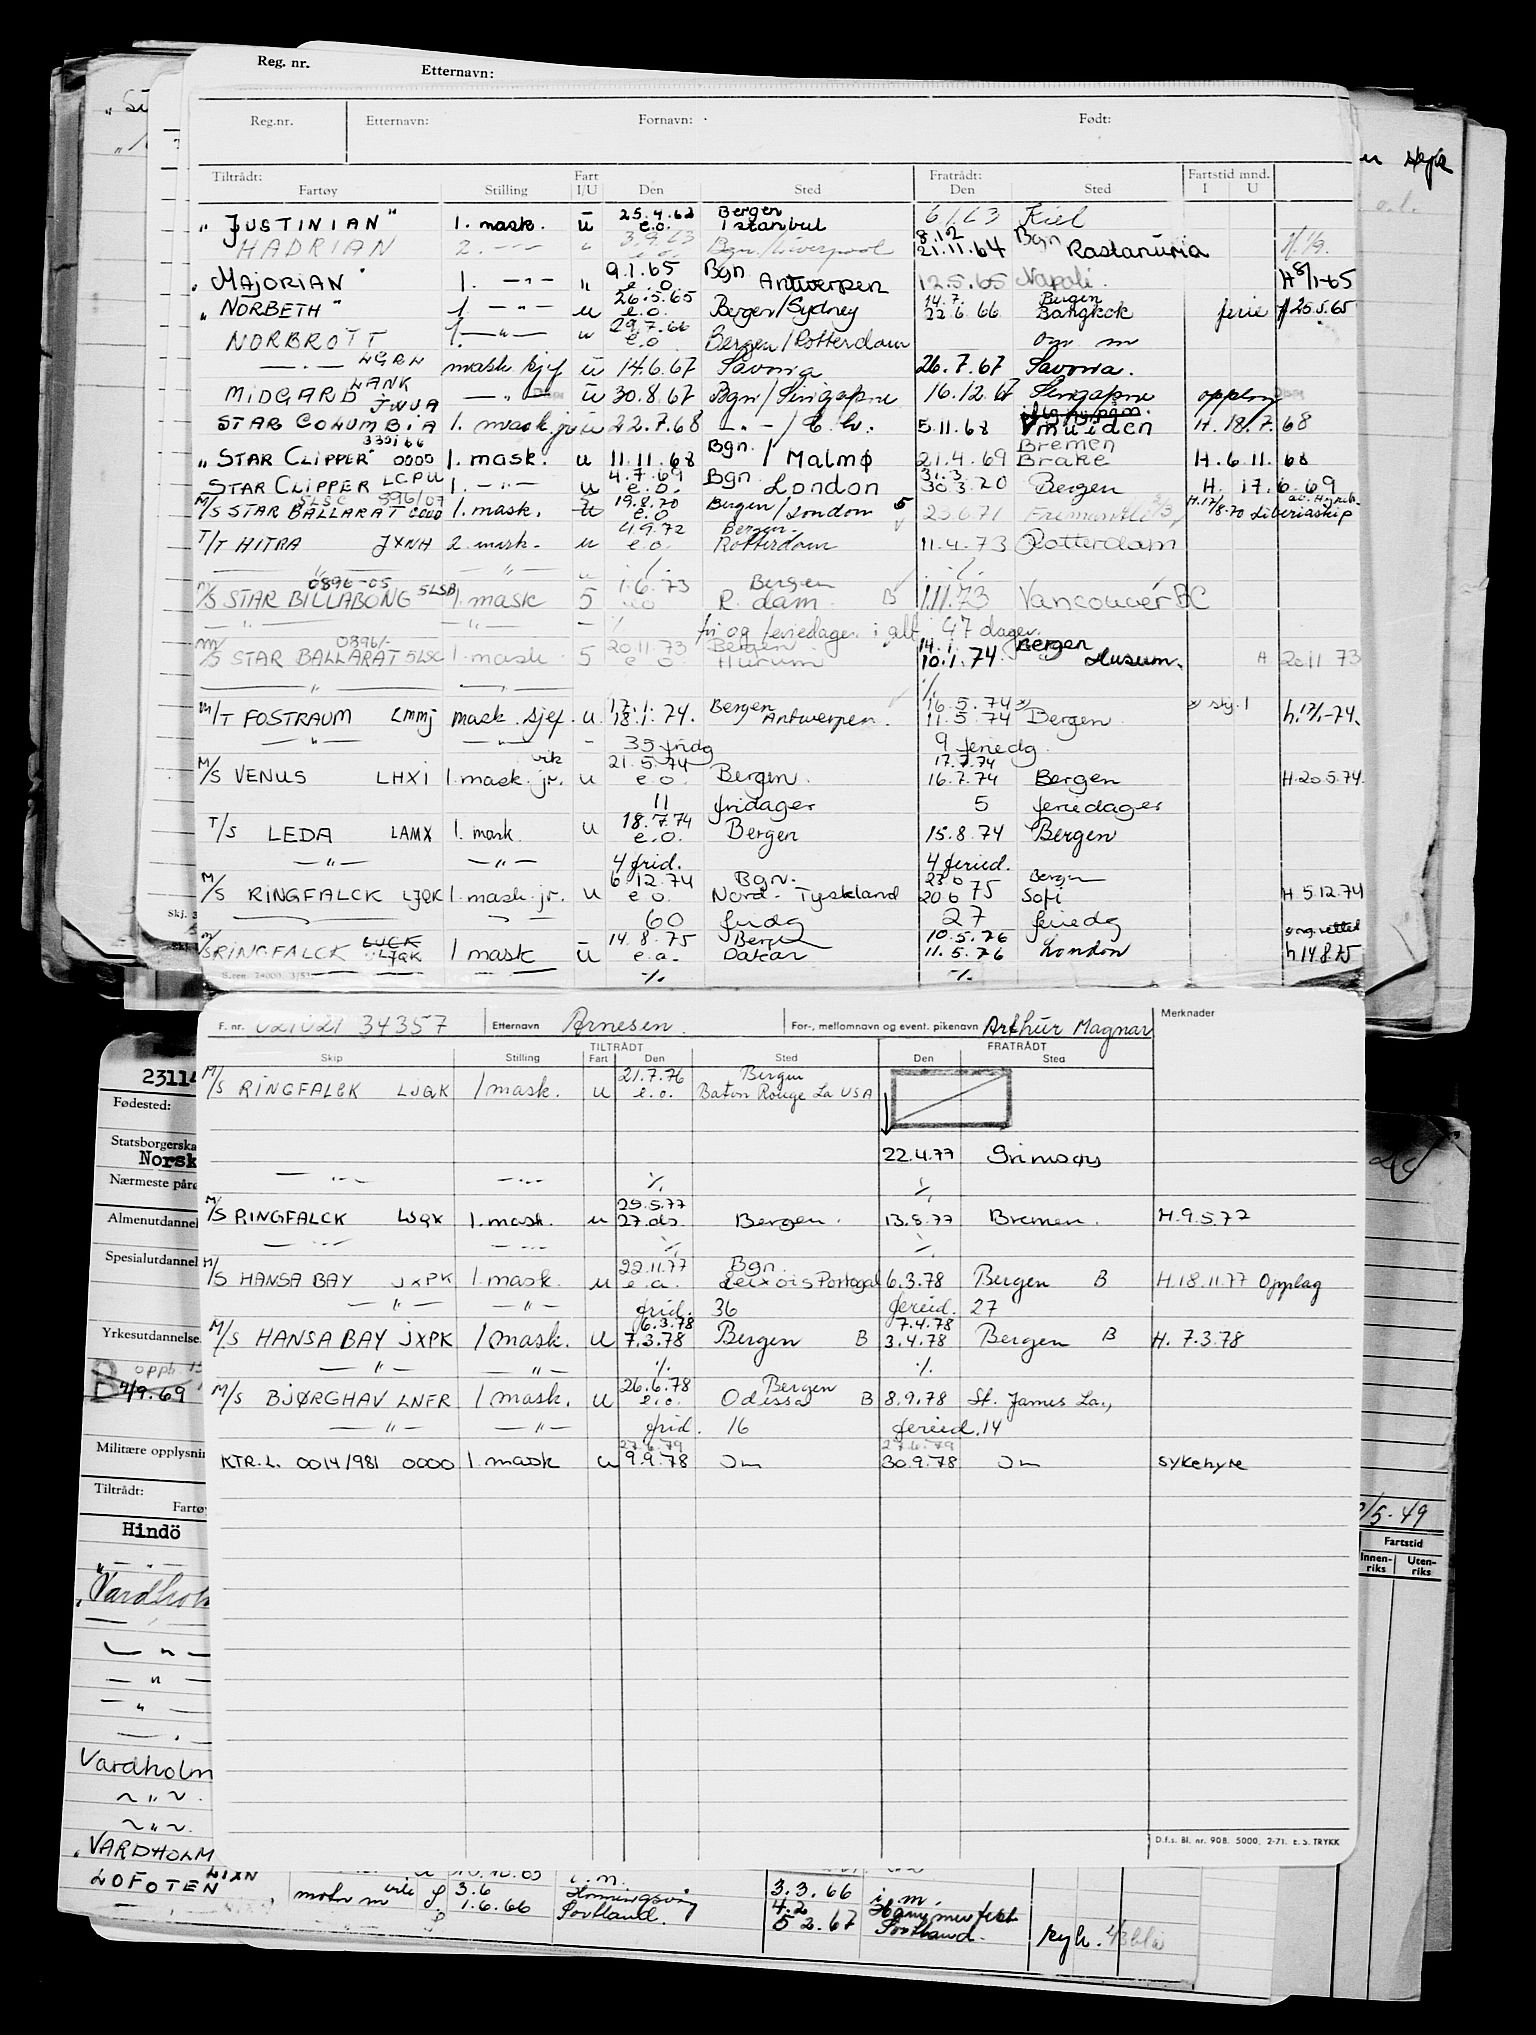 Reg. nr. Etternavn:
Reg.nr. Etternavn: Fornavn: Født:
Tiltrådt: Fart Fratrådt: Fartstid mnd.
Fartøy Stilling I/U Den Sted Den Sted I U
25.4.62 Bergen
" JUSTINIAN " 1. mask. u e.o. Istanbul 6/1.63 Kiel
3.9.63 8.12 Bgn
HADRIAN 2. -"- " Bgn/Liverpool 21.11.64 Rastanuria
9.1.65 Bgn
" MAJORIAN " 1. -"- " e.o. Antwerpen 12.5.65 Napoli. H 8/1-65
26.5.65 14.7. Bergen
" NORBETH " 1 -"- u e.o. Bergen/Sydney 22.6.66 Bangkok ferie H 25.5.65
29.7.66
NORBROTT 1. -"- u e.o Bergen/Rotterdam om m
-"- LGRN mask sjef u 14.6.67 Savona 26.7.67 Savona.
MIDGARD LANK -"- u 30.8.67 Bgn/Singapore 16.12.67 Singapore opplag
JWUA
STAR COLUMBIA 1. mask jr u 22.7.68 -"- / 5.11.68 Ymuiden H. 18.7.68
339166 Bgn. Bremen
" STAR CLIPPER " 0000 1. mask. u 11.11.68 / Malmø 21.4.69 Brake H. 6.11.68
4.7.69 Bgn 31.3
STAR CLIPPER LCPU 1. -"- u e.o. London 30.3.70 Bergen H. 17.6.69
5LSC 396/07 19.8.70
M/S STAR BALLARAT 0000 1. mask. u e.o Bergen/London 5 23.6.71 Fremantle H.17/8-70 Liberiaskip
4.9.72 Bergen
T/T HITRA JXNH 2. mask. u e.o. Rotterdam 11.4.73 Rotterdam
-"- -"- ./. ./.
0896-05 1.6.73 Bergen
M/S STAR BILLABONG 5LSB 1 mask 5 e.o R. dam. B 1.11.73 Vancouver BC
-"- -"- - fri og feriedager i alt 47 dager.
0896/- 20.11.73 Bergen 14.1. Bergen
M/S STAR BALLARAT 5LSC 1. mask 5 e.o. Husum 10.1.74 Husum. A 20.11.73
-"- -"- ./.
17.1. Bergen 16.5.74
M/T FOSTRAUM LMMJ mask. sjef. u 18.1.74. Antwerpen. 11.5.74 Bergen h. 17/1-74.
-"- -"- - 35 fridg 9 feriedg.
vik 21.5.74 17.7.74
M/S VENUS LHXI 1. mask. jr. u e.o. Bergen. 16.7.74 Bergen H. 20.5.74.
11 fridager 5 feriedager
18.7.74
T/S LEDA LAMX 1. mask. u e.o. Bergen 15.8.74 Bergen
-"- -"- 4 frid. 4 feried.
6.12.74 Bgn. 23.6 Bergen
M/S RINGFALCK LJQK 1. mask. jr. u e.o. Nord-Tyskland 20.6.75 Sofi H. 5.12.74
60 fridg 27 feriedg
14.8.75 Bergen 10.5.76
M/S RINGFALCK LJQK 1 mask u e.o. Dakar 11.5.76 London h 14.8.75
./. ./.
F. nr. 021021 34357 Etternavn Arnesen. For-, mellomnavn og event. pikenavn Arthur Magnar Merknader
TILTRÅDT FRATRÅDT
Skip Stilling Fart Den Sted Den Sted
21.7.76 Bergen
M/S RINGFALCK LJQK 1 mask. u e.o. Baton Rouge La USA
22.4.77 Grimsøy
-"- -"- ./. ./.
25.5.77
M/S RINGFALCK LJQK 1. mask. u 27.ds. Bergen. 13.8.77 Bremen. H. 9.5.77
-"- -"- ./. ./.
22.11.77 Bgn.
M/S HANSA BAY JXPK 1. mask. u e.o. Leixois Portogal 6.3.78 Bergen B H. 18.11.77 Opplag
-"- -"- frid. 36 feried. 27
6.3.78 7.4.78
M/S HANSA BAY JXPK 1 mask. u 7.3.78 Bergen B 3.4.78 Bergen B H. 7.3.78
-"- -"- ./. ./.
26.6.78 Bergen
M/S BJØRGHAV LNFR 1 mask. u e.o. Odessa B 8.9.78 St. James La.,
-"- -"- frid. 16 feried. 14
27.6.79 27.6.79
KTR.L. 0014/981 0000 1. mask u 9.9.78 Im 30.9.78 Im sykehyre
D.f.s. Bl. nr. 908. 5000. 2-71. E. S. TRYKK
23114
Fødested:
Statsborgerska
Norsk
Nærmeste påre
Almenutdannel
Spesialutdannel
Yrkesutdannelse
4/9.69
Militære opplysnin
Tiltrådt:
Fartøy
Hindö
"Vardholm
Vardholm
"VARDHOLM
LOFOTEN LIXN motor m vik 3.6 Honningsvåg 3.3.66 i.m.
1.6.66 Sortland. 4.2 Hammerfest
5 2.67 Sortland. syk.
/5-49
Fartstid
Innen-riks Uten-riks